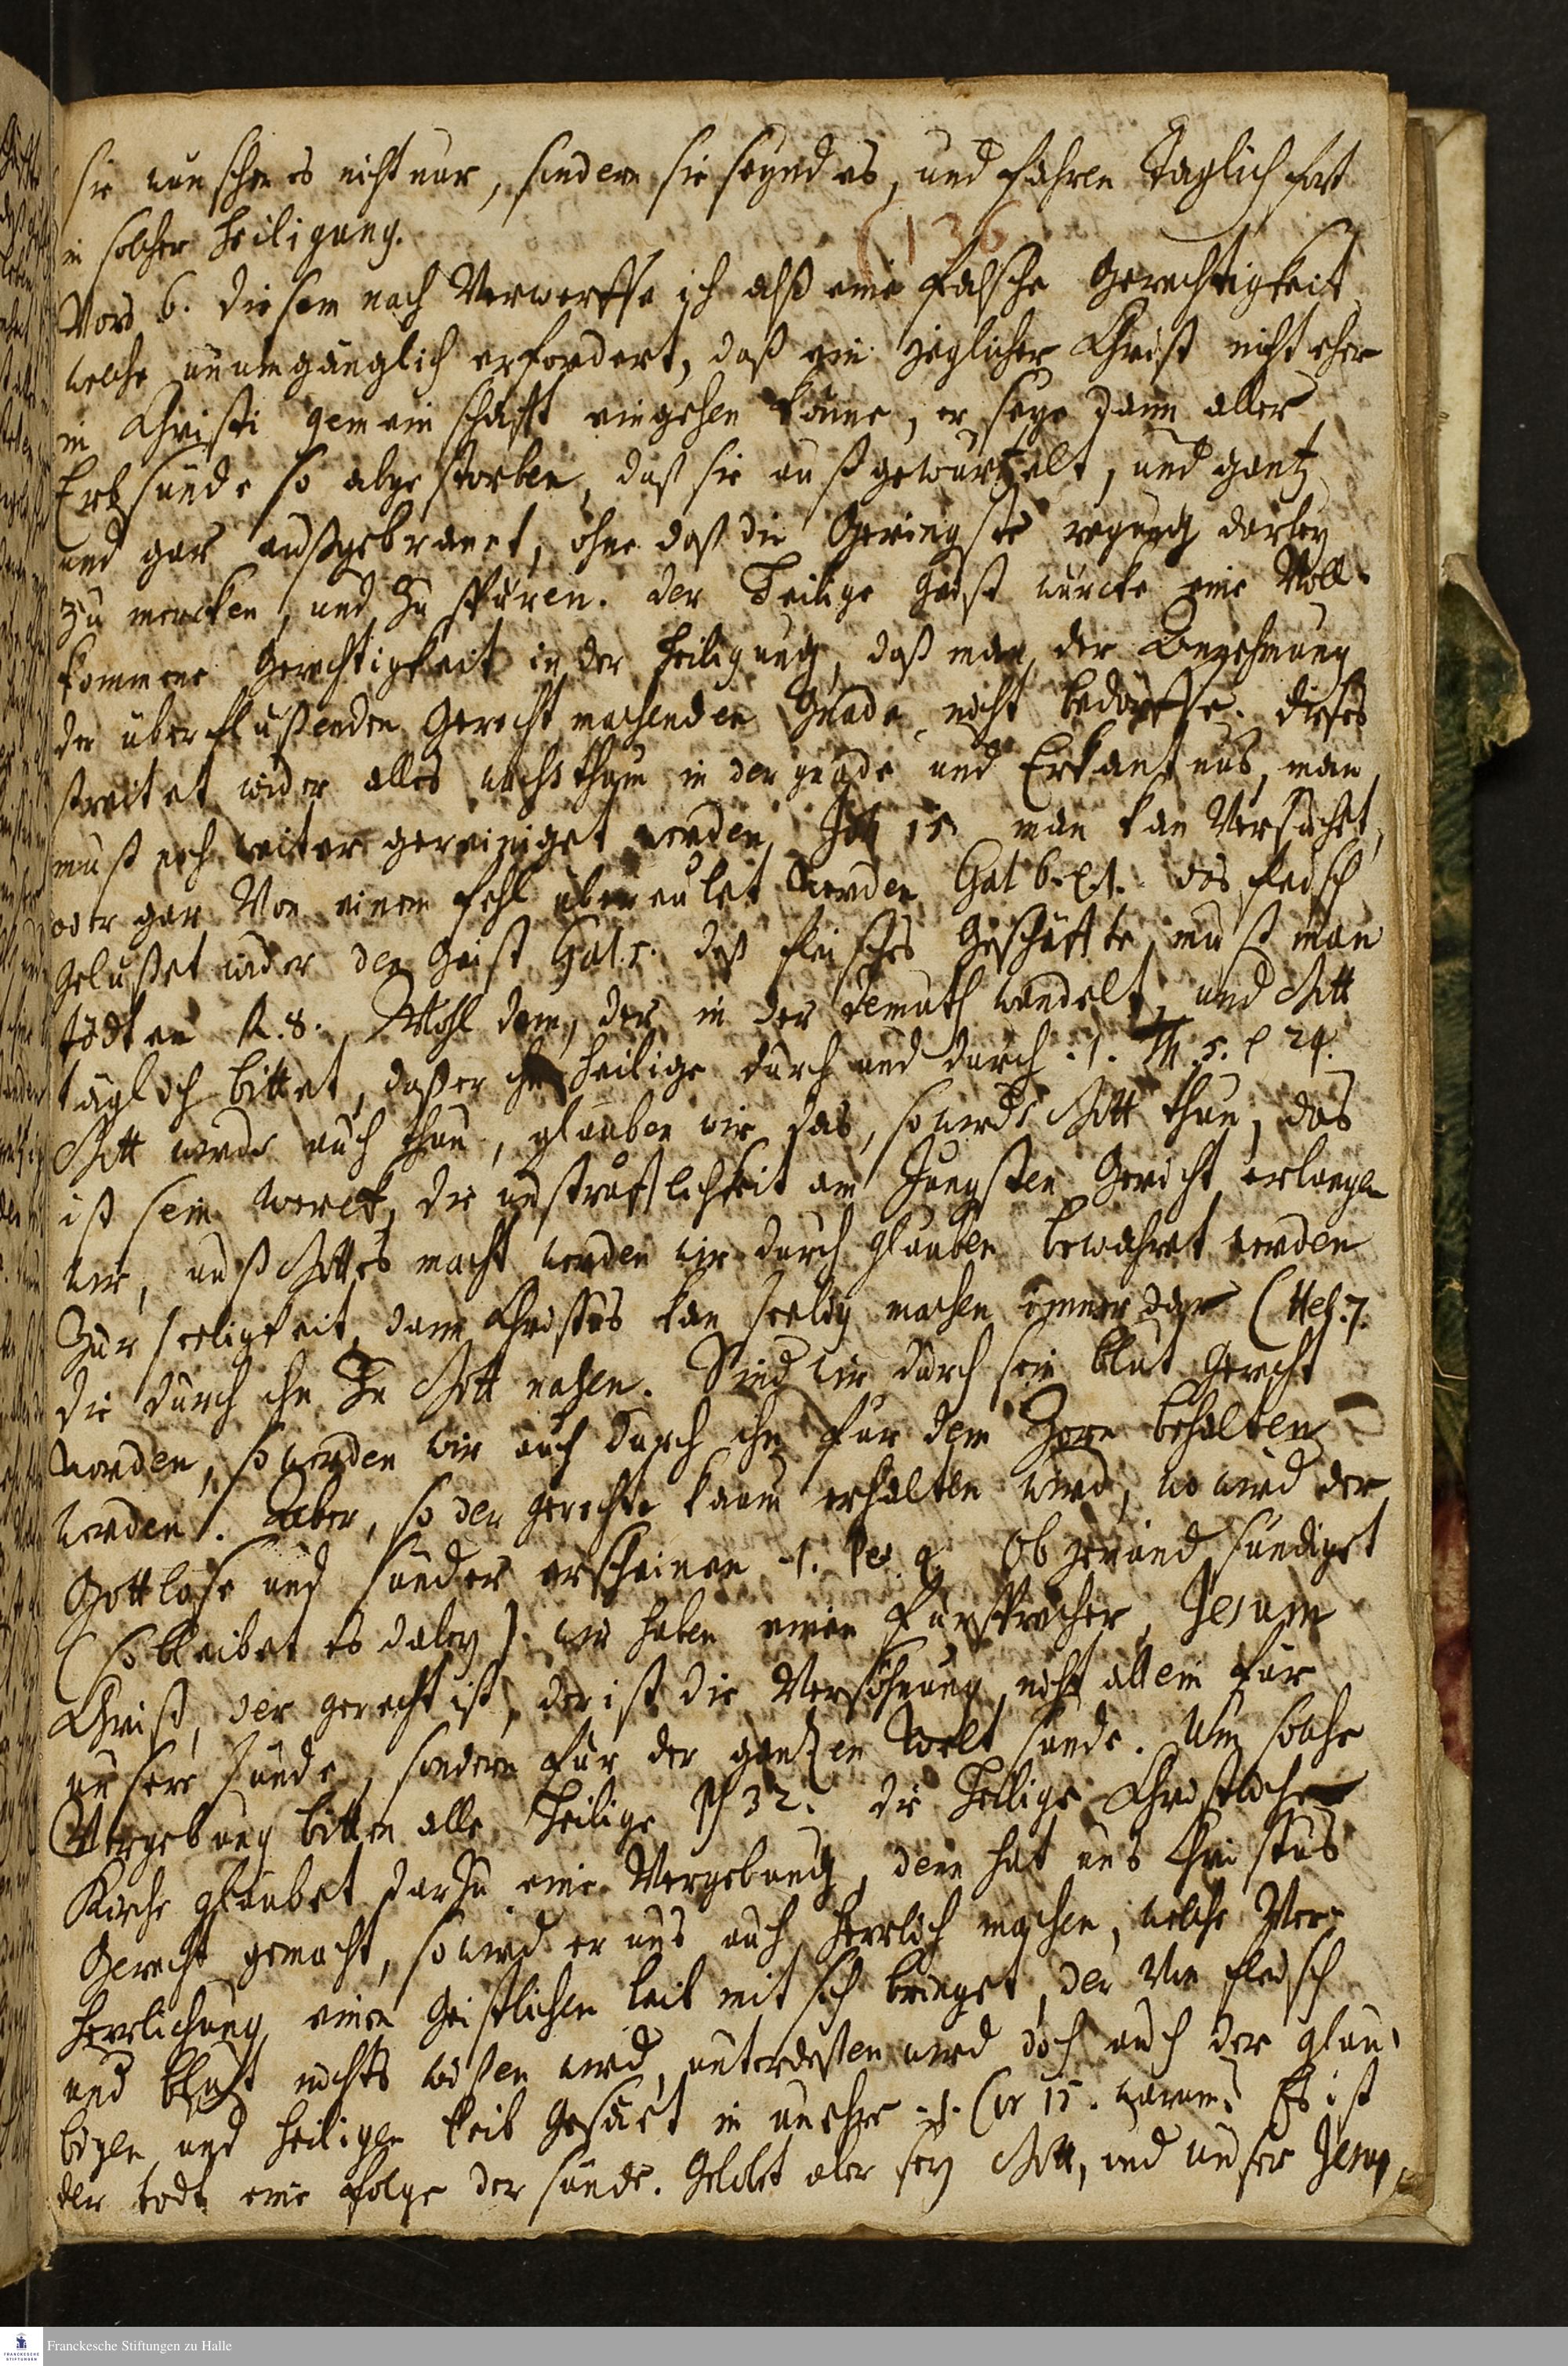 sie wünschen es nicht nur, sondern sie seynd es, und fahren täglich fort
in solcher heiligung.
(136
Vors 6. diesem nach Verwerffe ich alß eine falsche Gerechtigkeit
welche unumgänglich erfordert, daß ein jeglicher Christ nicht eher
in Christi gemeinschafft eingehen könne, er seye dann aller
Erbsünde so abgestorben, daß sie außgewurtzelt, und gantz
und gar außgebrannt, ohne daß die Geringste regung darbey
zu mercken, und zu spüren. der Heilige Geist würcke eine Voll-
kommene Gerechtigkeit in der heiligung, daß man der
der überflüßenden Gerecht machenden Gnade nicht bedörffe. dieses
streitet wider alles wachsthum in der gnade und Erkantnus, man
muß noch weiter gereiniget werden, Joh 15 man kan Versucht,
oder gar Von einem fehl übereilet werden Gal 6. das fleisch
Gelustet wider den Geist Gal. 5. deß fleisches Geschäffte muß man
tödten R. 8. Wohl dem, der in der demuth wandelt, und Gott
täglich bittet, daß er ihn heilige durch und durch. 1. Th. 5. 24.
Gott werde auch thun, glauben wir das, so wirds Gott thun, das
ist sein werck, die unsträflichkeit am Jüngsten Gericht erlangen
wir, auß Gottes macht werden wir durch glauben bewahret werden
Zur seeligkeit, dann Christus kan seelig machen immerdar (Heb. 7.
die durch ihn Zu Gott nahen. Sind wir durch sein blut Gerecht
worden, so werden wir auch durch ihn für dem Zorn behalten
werden. Aber, so der gerechte kaum erhalten wird, wo wird der
Gottlose und sünder erscheinen 1. Pet. 4. Ob jemand sündiget
(so bleibet es dabey) wir haben einen Fürsprecher, Jesum
Christ, der gerecht ist, der ist die Versöhnung, nicht allein für
unsere sünde, sondern für der gantzen Welt sünde. Um solche
Vergebung bitten alle Heilige Ps 32. die Heilige Christliche
Kirche glaubet darzu eine Vergebung, denn hat uns Christus
Gerecht gemacht, so wird er uns auch herrlich machen, welche Ver-
herrlichung einen Geistlichen leib mit sich bringet, der Von fleisch
und bluht nichts wißen wird, unterdeßen wird doch auch der glau-
bigen und heiligen leib Gesäet in unehre 1. Cor 15. warum? Es ist
der todt eine folge der sünde. Gelobet aber sey Gott, und unser Jesus,
Franckesche Stiftungen zu Halle